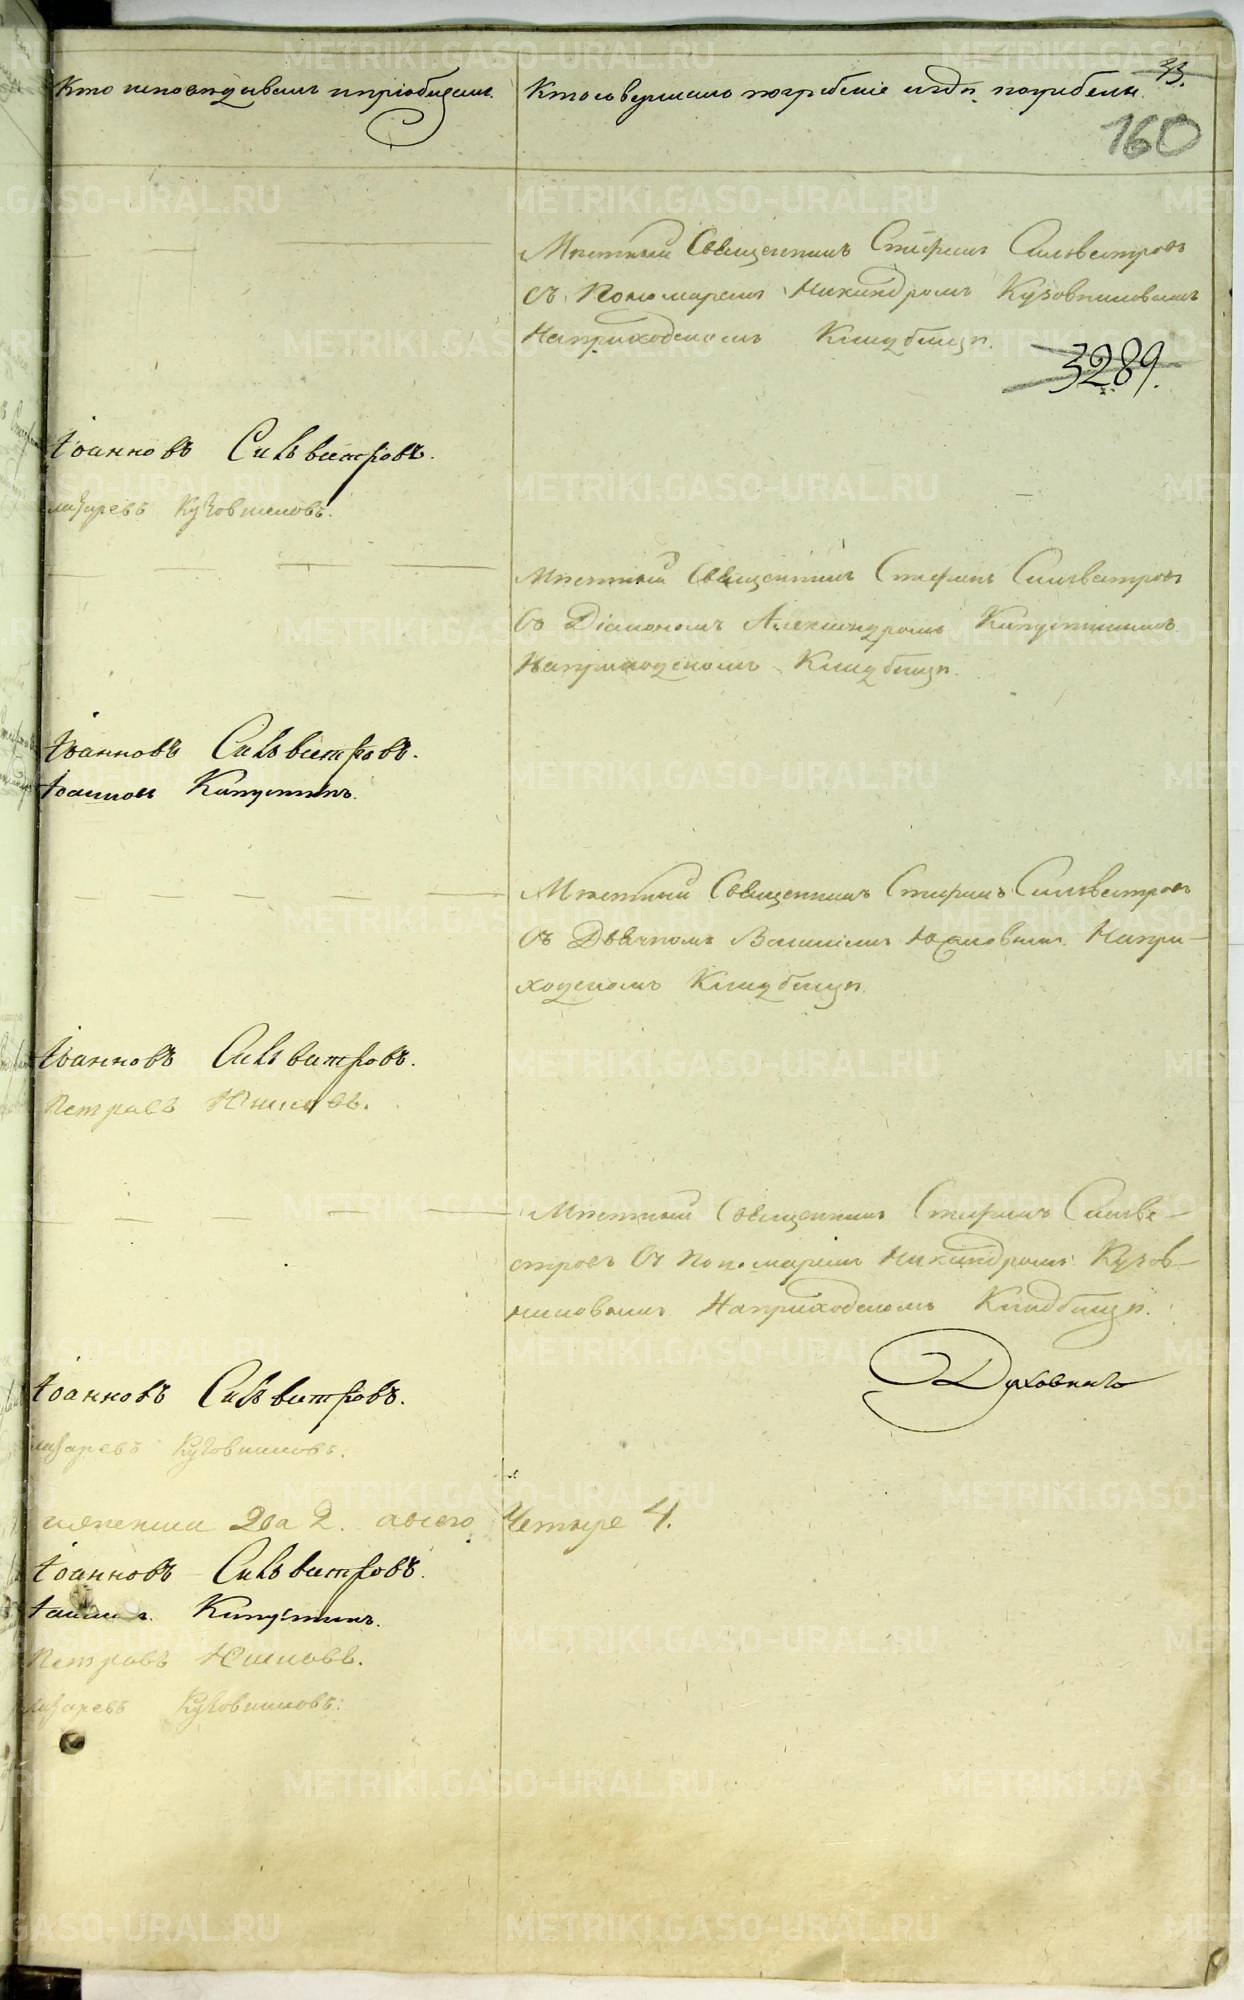 33.
Кто исповѣдывалъ и пріобщалъ.
Кто совершалъ погребеніе и гдѣ погребены.
160
Мѣстный Священникъ Стефанъ Сильвестровъ
съ Пономаремъ Никандромъ Кузовниковымъ
На приходскомъ Кладбищѣ.
3289.
Іоанновъ Сильвестровъ.
Лазаревъ Кузовниковъ.
Мѣстный Священникъ Стефанъ Сильвестровъ
Съ Діакономъ Александромъ Капустинымъ
На приходскомъ Кладбищѣ.
Іоанновъ Сильвестровъ.
Іоанновъ Капустинъ.
Мѣстный Священникъ Стефанъ Сильвестровъ
Съ Дьячкомъ На при-
ходскомъ Кладбищѣ.
Іоанновъ Сильвестровъ.
Петровъ
Мѣстный Священникъ Стефанъ Сильве-
стровъ Съ Пономаремъ Никандромъ Кузов-
никовымъ На приходскомъ Кладбищѣ.
Іоанновъ Сильвестровъ.
Лазаревъ Кузовниковъ.
два 2. а всего Четыре 4.
Іоанновъ Сильвестровъ.
Капустинъ.
Петровъ
Лазаревъ Кузовниковъ.
METRIKI.GASO-URAL.RU